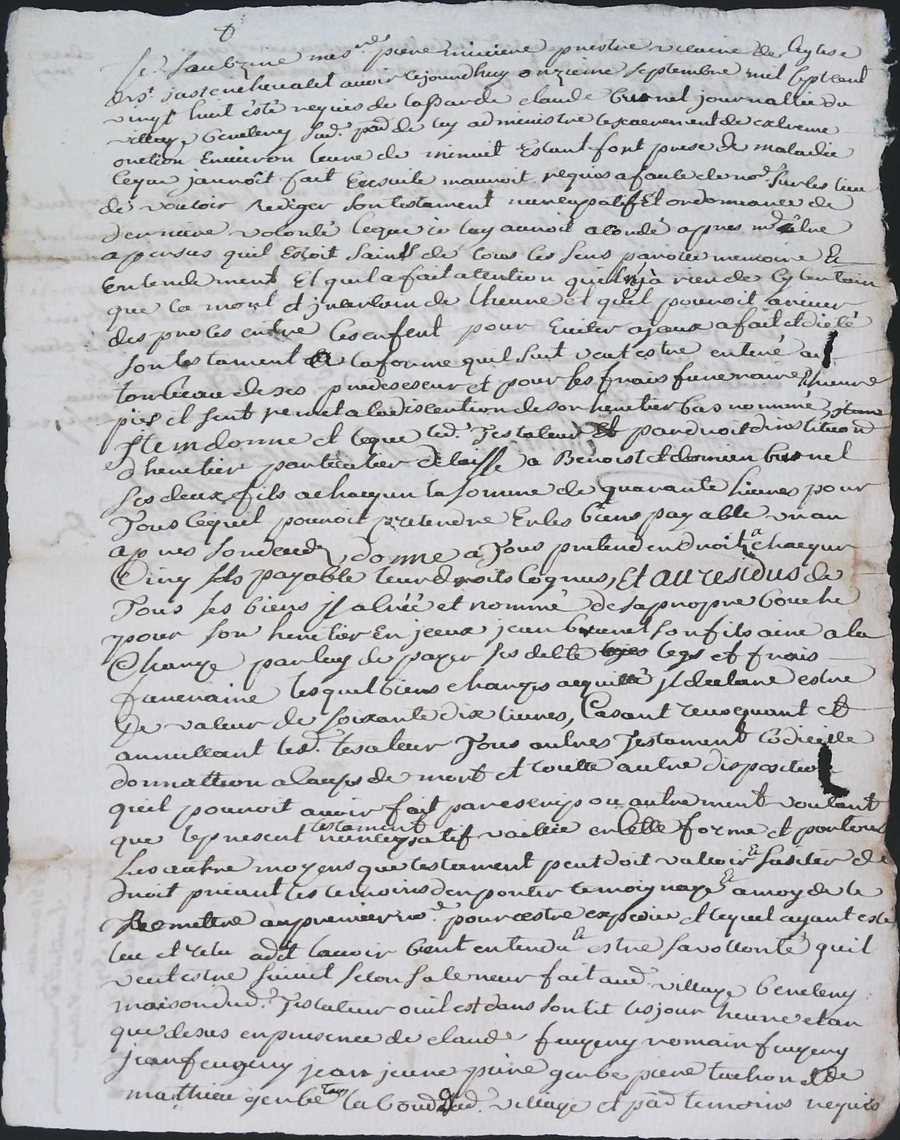 Je soubzine mes.re piere miniere prestre vicaire de leglise
de s.t just enchevalet avoir cejourdhuy onzieme septembre mil sept cent
vingt huit esté requis de la part de claude brunel journallie du
village beneleny sud. par.d de luy administre le sacrement de extreme
onction Environ leure de minuit Estant fort prese de maladie
leque jaurois fait Ensuite mauroit requis a faute de no.re sur les lieu
de vouloir rediger son testament nuncupatif Et ordonnance de
derniere volonté leque je luy aurois acordé apres m estre
apersus quil Estoit saint de tous les sens parolle memoire Et
Entendement Et quil a fait atention quil nja rien de cy certain
que la mort et jncertain de lheure et quil pouroit ariver
des proces entre les enfent pour Eviter a jceux a fait et dicté
son testament de la forme quil suit veut estre enteré au
tombeau de ses predeseseur et pour les frais funeraire heuvre
pies il sent remet a la discention de son heretier bas nommé jtem
Jtem donne et legue led. Testateur Et par droit dinstitution
dheretier particulier delaisse a Benoist et domien brunel
ses deux fils a chaqun la somme de quarante livres pour
Tous lequel pouroit pretendre En les biens payable un an
apres son deced donne a Tous pretendendroit a chaqun
Cinq sols payable leur droits cognus, Et au residus de
Tous ses biens jl a créé et nommé de sa propre bouche
pour son heretier En jceux jean brunel son fils aine a la
Charge par luy de payer ses debte legs et frais
funeraire lesquel biens charges aquitté jl declare estre
de valeur de soixante dix livres, Casant revoquant et
annullant led. testateur Tous autres Testament codicille
donnattion a cause de mort et toutte autre disposition
quil pouroit avoir fait par escrip ou autrement voulant
que le present testament nuncupatif vaille en cette forme et par tous
les autre moyens que testament peut doit valloir Et susiter de
droit priant les temoins den porter temoignage Et a moy de le
Remettre au premier no.re pour estre expedie et lequel ayant esté
leu et relu a dit lavoir bient entendu Et estre sa vollonté quil
veut estre suivit selon sa teneur fait aud. village beneleny
maison dud. Testateur ou il est dans son lit les jour heure et an
que desus en presence de claude fugeny romain fugeny
jean feugeny jean jeune piere genbe piere tachon et de
mathieu genbe tous la boud dud. village et par.d temoins requis